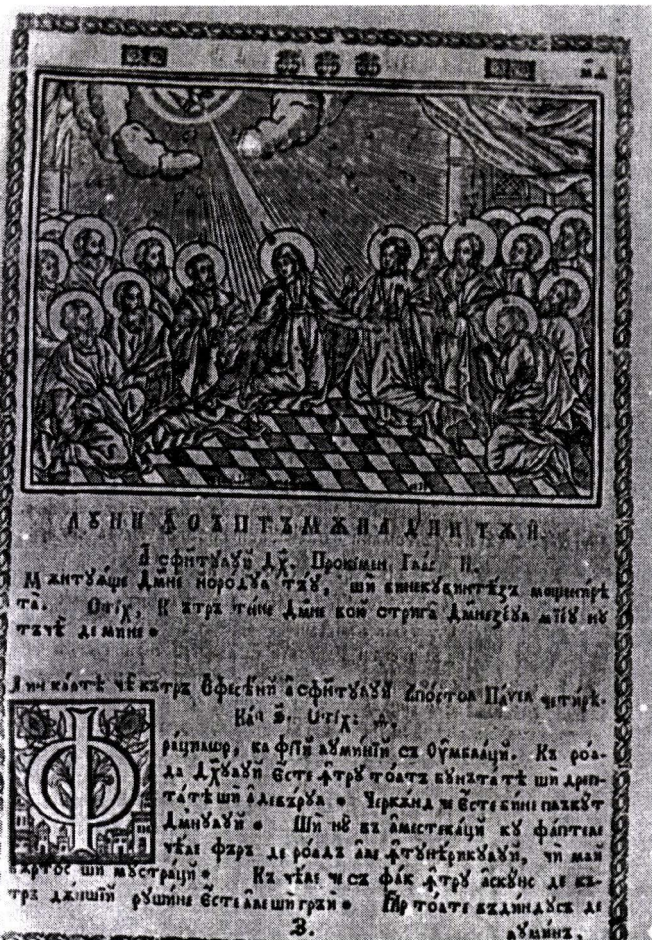 м҃д
ЛꙊНИ Ꙟ СЪПТЪМѪНА ДИНТѪЙ.
А сфн҃тꙋлꙋй Дх҃. Прокімен, Глас И.
Мѫнтꙋѧще Дм҃не нородꙋл тъꙋ, ши бинекꙋвинтѣзъ мощенирѣ
та. Стіх, Кътръ тине Дм҃не вою стрига Дм҃незеꙋл мїеꙋ нꙋ
тъчѣ де мине.
Дин картѣ чѣ кътръ Єфесѣни а сфн҃тꙋлꙋй Апостол Павел четире.
Кап Стіх:
Фрацилѡр, ка фїй лꙋминїй съ Оумблаци. Къ роа-
да Дх҃ꙋлꙋй єсте ꙟтрꙋ тоатъ бꙋнътатѣ ши дреп-
татѣ ши адевърꙋл. Черкѫнд че єсте бине плъкꙋт
Дмн҃ꙋлꙋй. Ши нꙋ въ аместекаци кꙋ фаптеле
чѣле фъръ де роадъ але ꙟтꙋнѣрикꙋлꙋй, чи май
вѫртос ши мꙋстраци. Къ чѣле че съ фак ꙟтрꙋ аскꙋнс де къ-
тръ дѫншїй рꙋшине єсте але ши грѫй. Іар тоате въдиндꙋсъ де
В.
лꙋминъ,